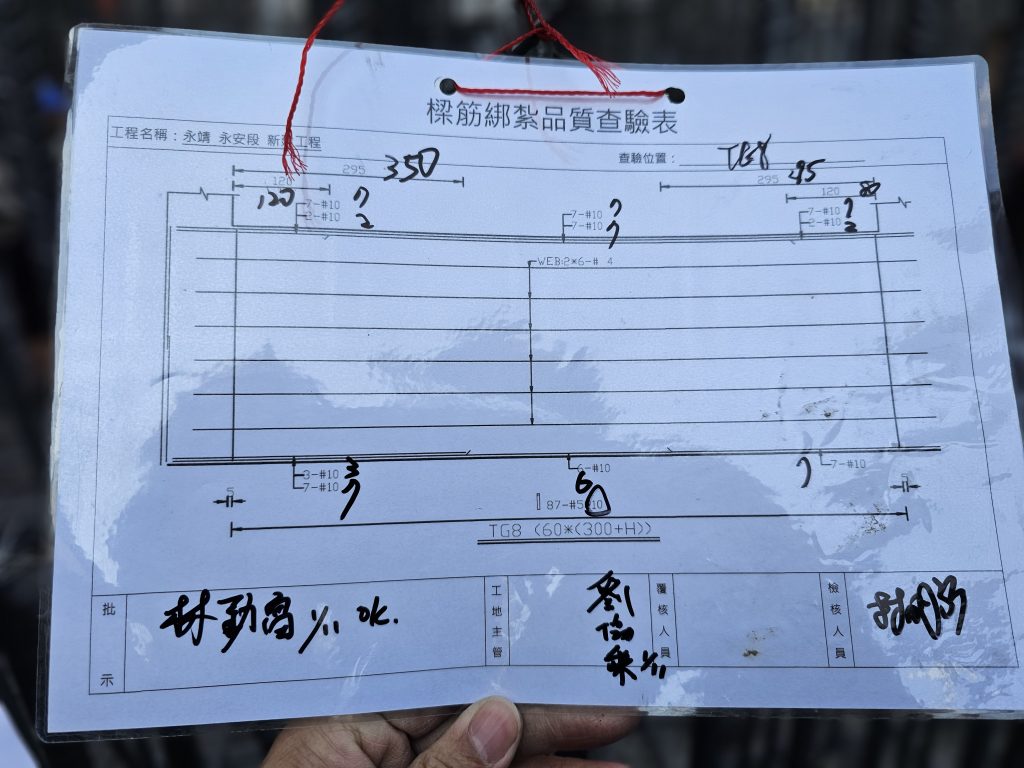 樑筋綁紮品質查驗表
工程名稱：永靖 永安段 新建工程
查驗位置： TG8
295 350
295 295
120 120
120 80
7-#10 7
2-#10 2
7-#10 7
7-#10 7
7-#10 7
2-#10 2
WEB:2*6-# 4
3-#10 3
7-#10 7
6-#10
6
7 7-#10
5
5
87-#5@10
TG8 (60*(300+H))
批示
林勁高 1/11 OK.
工地主管
劉
1/11
覆核人員
檢核人員